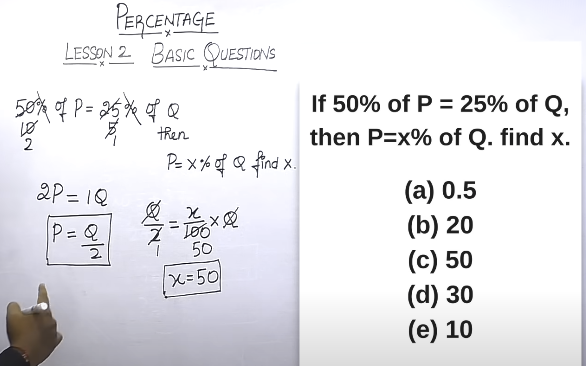 PERCENTAGE
LESSON 2 BASIC QUESTIONS
50% of P = 25% of Q
10 5
2 1
then
P = x% of Q find x.
2P = 1Q
P = Q/2
Q/2 = x/100 × Q
1 50
x = 50
If 50% of P = 25% of Q,
then P=x% of Q. find x.
(a) 0.5
(b) 20
(c) 50
(d) 30
(e) 10